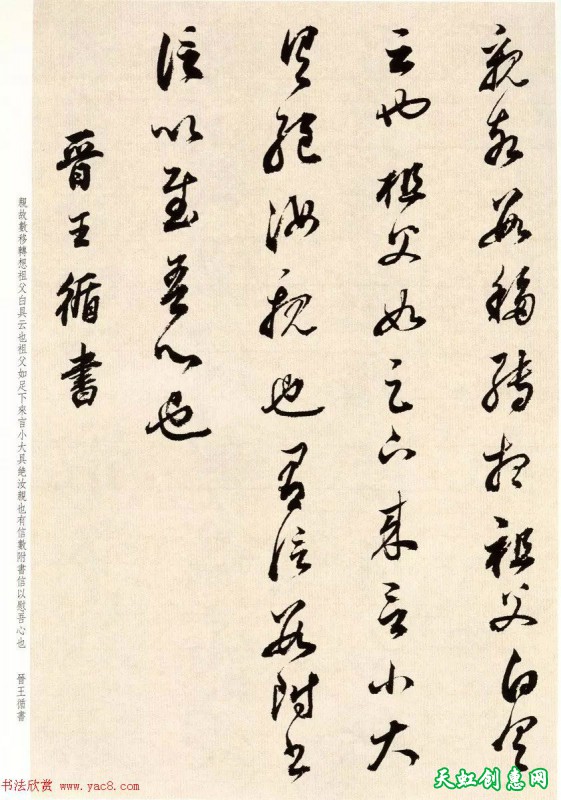 親故數移轉想祖父白具
云也祖父如足下來言小大
具絕汝親也有信數附書
信以慰吾心也
晉王循書
親故數移轉想祖父白具云也祖父如足下來言小大具絕汝親也有信數附書信以慰吾心也 晉王循書
书法欣赏 www.yac8.com
天虹创意网